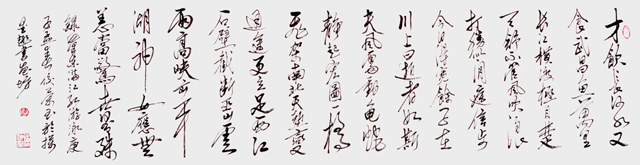 才饮长沙水又
食武昌鱼万里
长江横渡极目楚
天舒不管风吹浪
打胜似闲庭信步
今日得宽馀子在
川上曰逝者如斯
夫风樯动龟蛇
静起宏图一桥
飞架南北天堑变
通途更立西江
石壁截断巫山云
雨高峡出平
湖神女应无
恙当惊世界殊